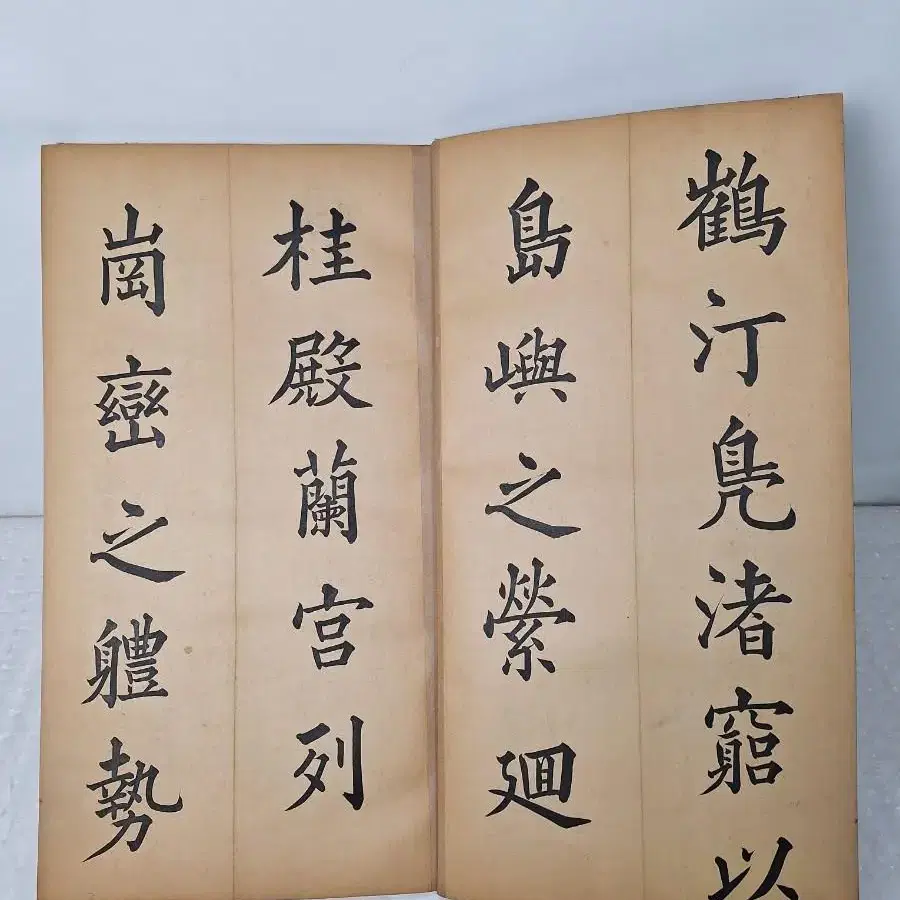 鶴汀鳧渚窮以
島嶼之縈廻
桂殿蘭宫列
崗巒之軆勢